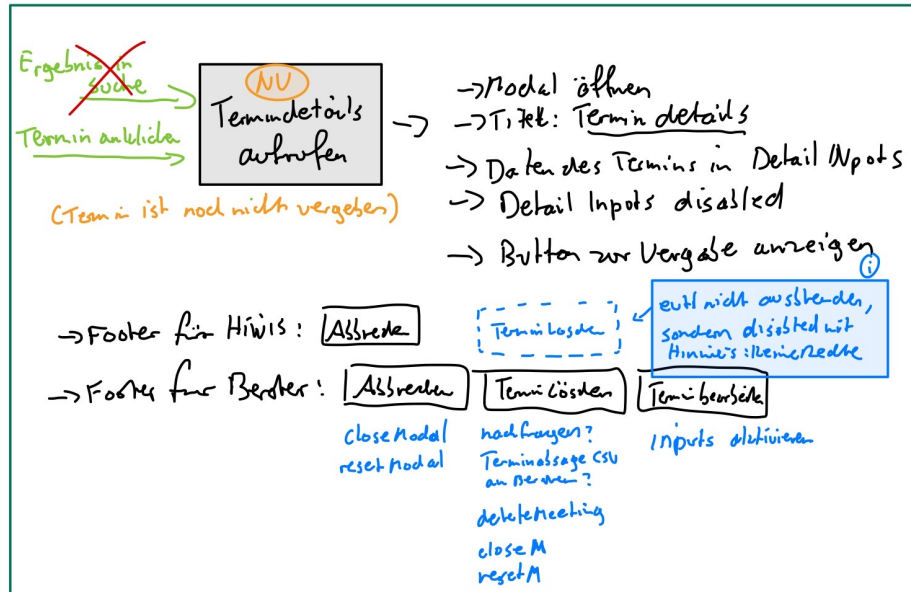 Ergebnis in
Suche
Termin anklicken
NV
Termindetails
aufrufen
(Termin ist noch nicht vergeben)
→ Modal öffnen
→ Titel: Termindetails
→ Daten des Termins in Detail Inputs
→ Detail Inputs disabled
→ Button zur Vergabe anzeigen
i
→ Footer für Hiwis: Abbrechen
Termin löschen
evtl nicht ausblenden,
sondern disabled mit
Hinweis: keine Rechte
→ Footer für Berater: Abbrechen Termin löschen Termin bearbeiten
closeModal
resetModal
nachfragen?
Terminabsage CSV
an Berater?
deleteMeeting
closeM
resetM
Inputs aktivieren